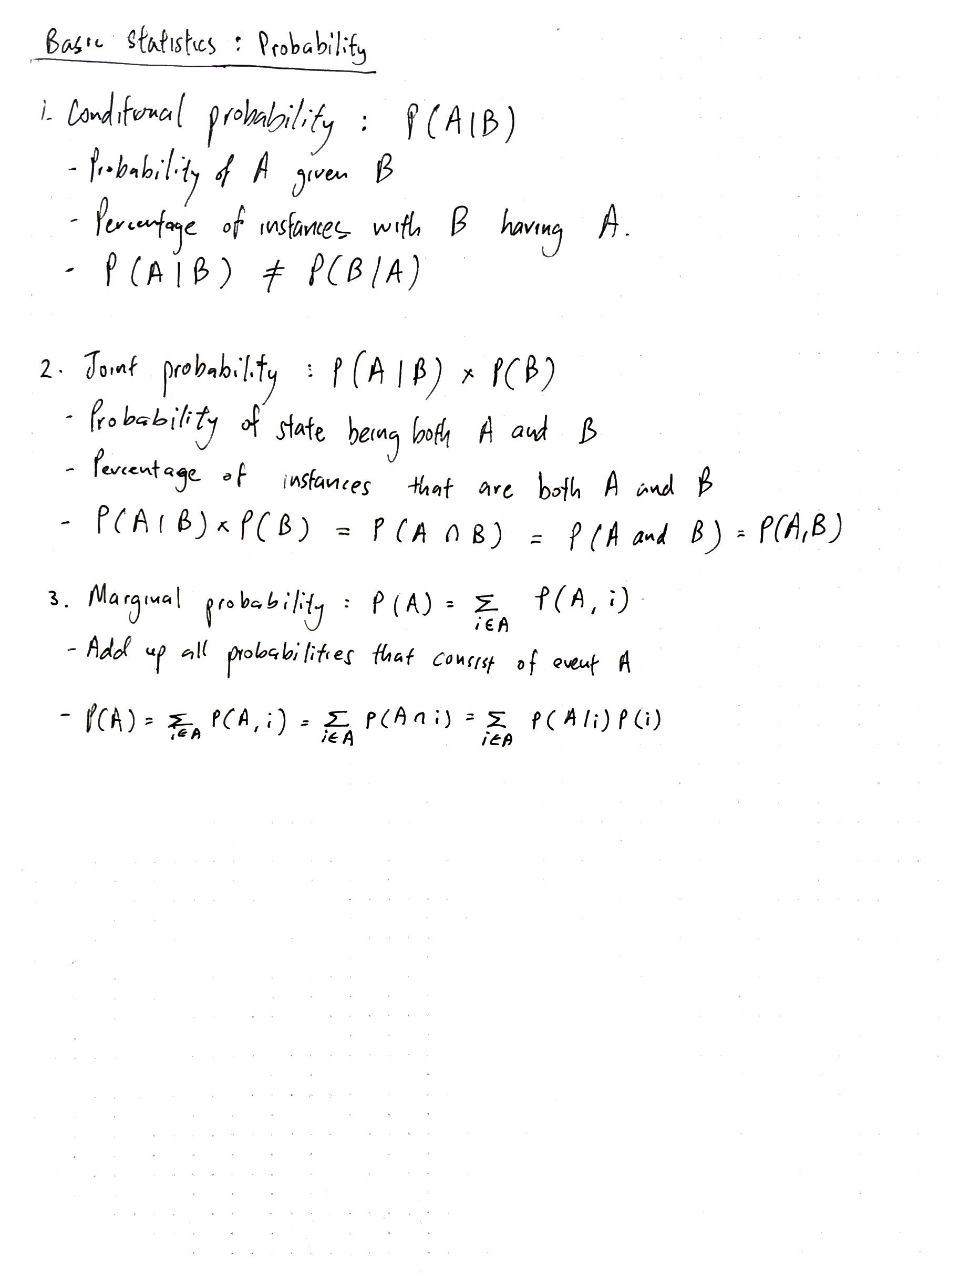 Basic Statistics : Probability
1. Conditional probability : P(A|B)
- Probability of A given B
- Percentage of instances with B having A.
- P(A|B) ≠ P(B|A)
2. Joint probability : P(A|B) × P(B)
- Probability of state being both A and B
- Percentage of instances that are both A and B
- P(A|B) × P(B) = P(A ∩ B) = P(A and B) = P(A,B)
3. Marginal probability : P(A) = Σ i∈A P(A, i)
- Add up all probabilities that consist of event A
- P(A) = Σ i∈A P(A, i) = Σ i∈A P(A ∩ i) = Σ i∈A P(A|i) P(i)